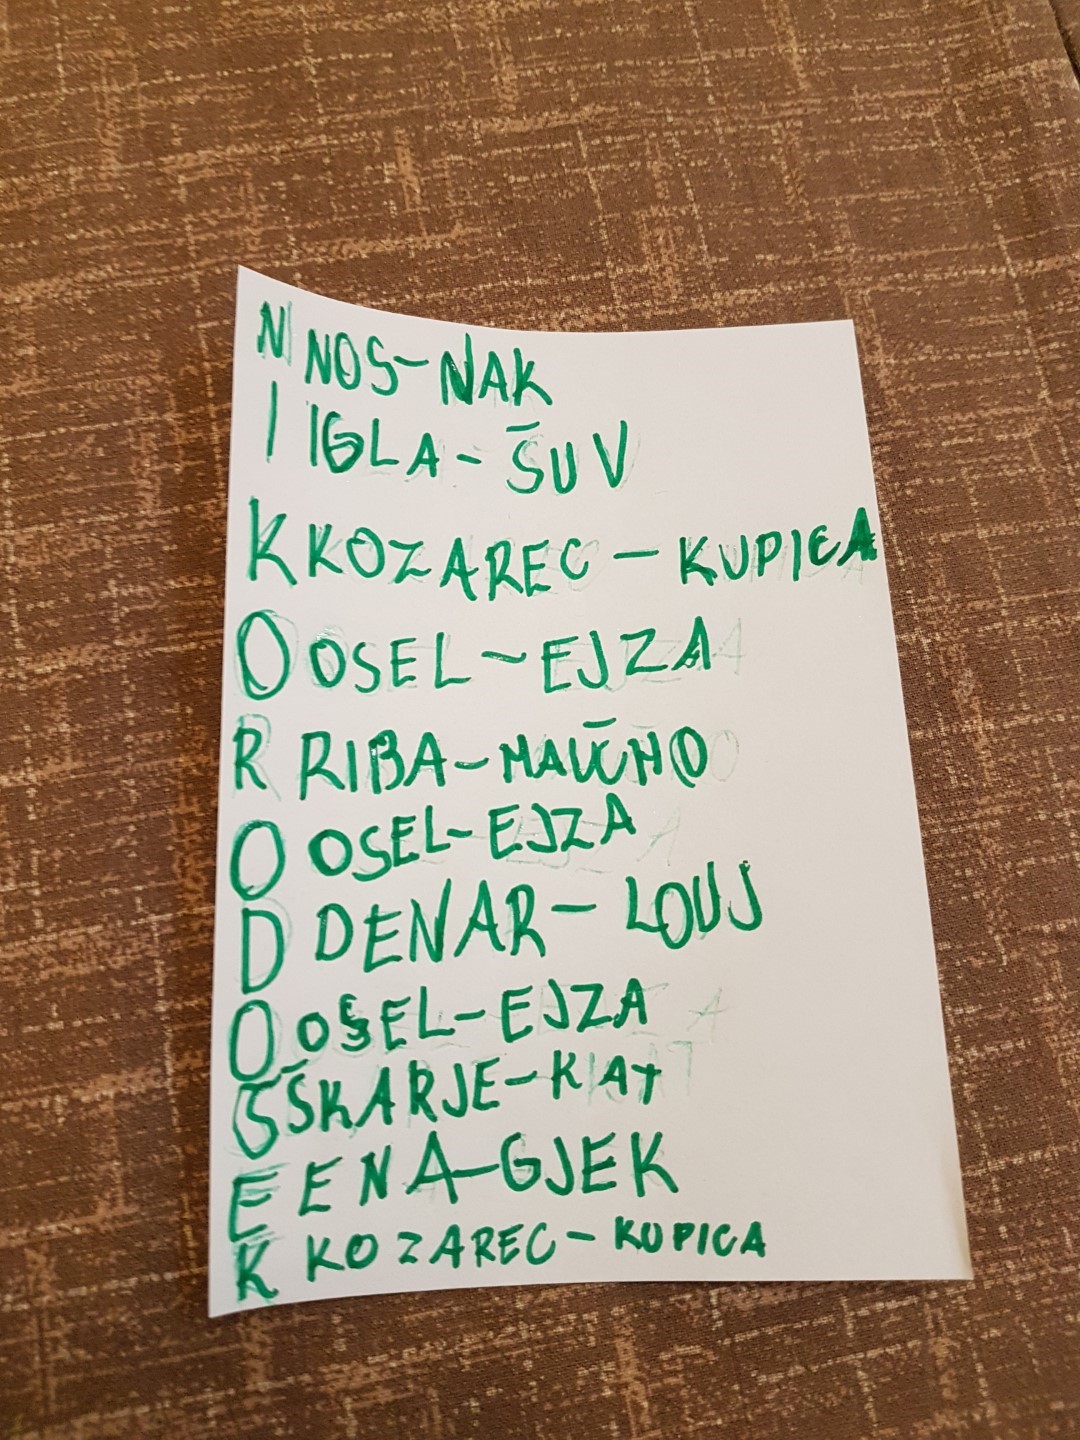 N NOS-NAK
I IGLA-ŠUV
K KOZAREC-KUPICA
O OSEL-EJZA
R RIBA-MAUČHO
O OSEL-EJZA
D DENAR-LOUJ
O OSEL-EJZA
Š ŠKARJE-KAT
E ENA-GJEK
K KOZAREC-KUPICA